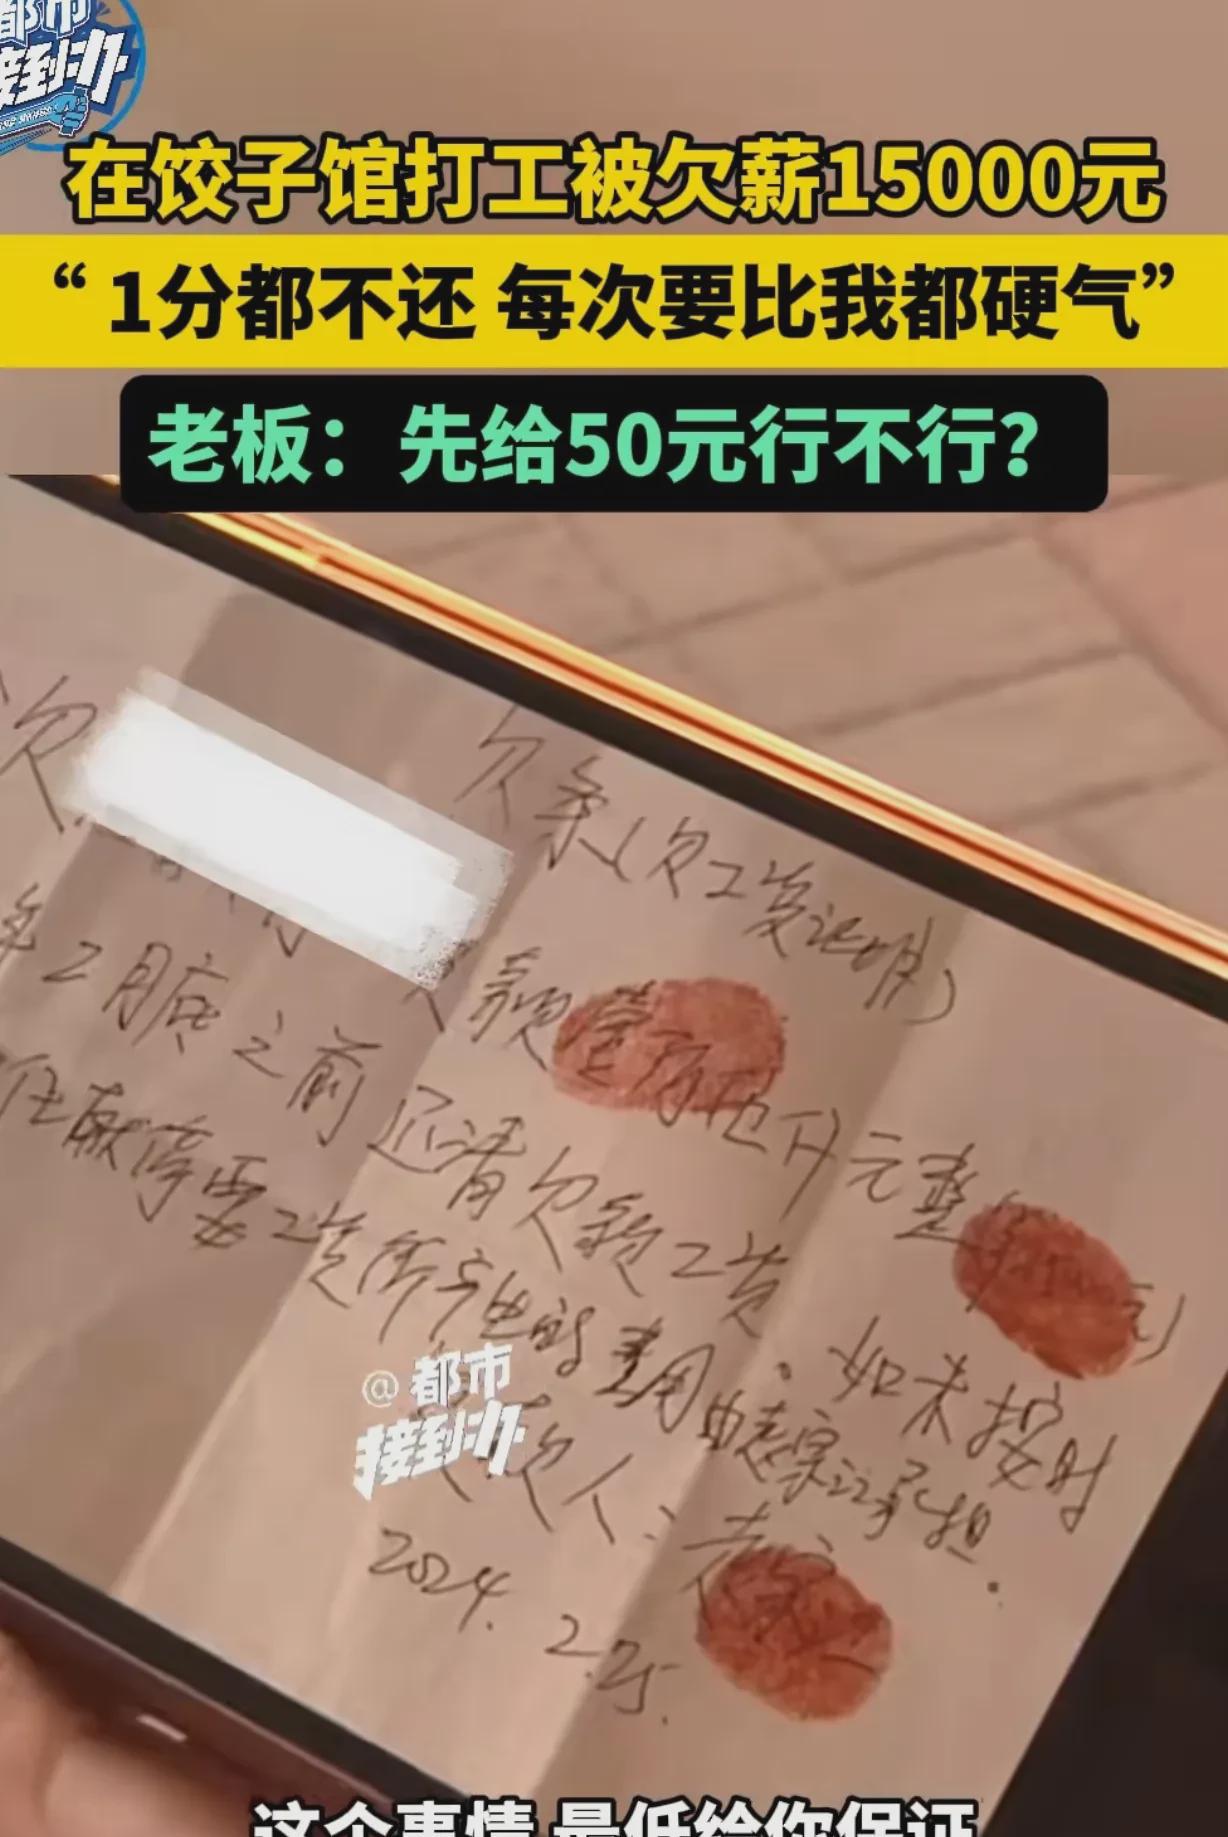 都市
接到办
在饺子馆打工被欠薪15000元
“1分都不还 每次要比我都硬气”
老板：先给50元行不行？
欠条(欠工资证明)
欠
欠款壹万 元整
年2月底之前还清欠款工资。如未按时
工资所产生的费用由 承担.
@都市
接到办
欠人：
2024.2.25.
这个事情 最低给你保证